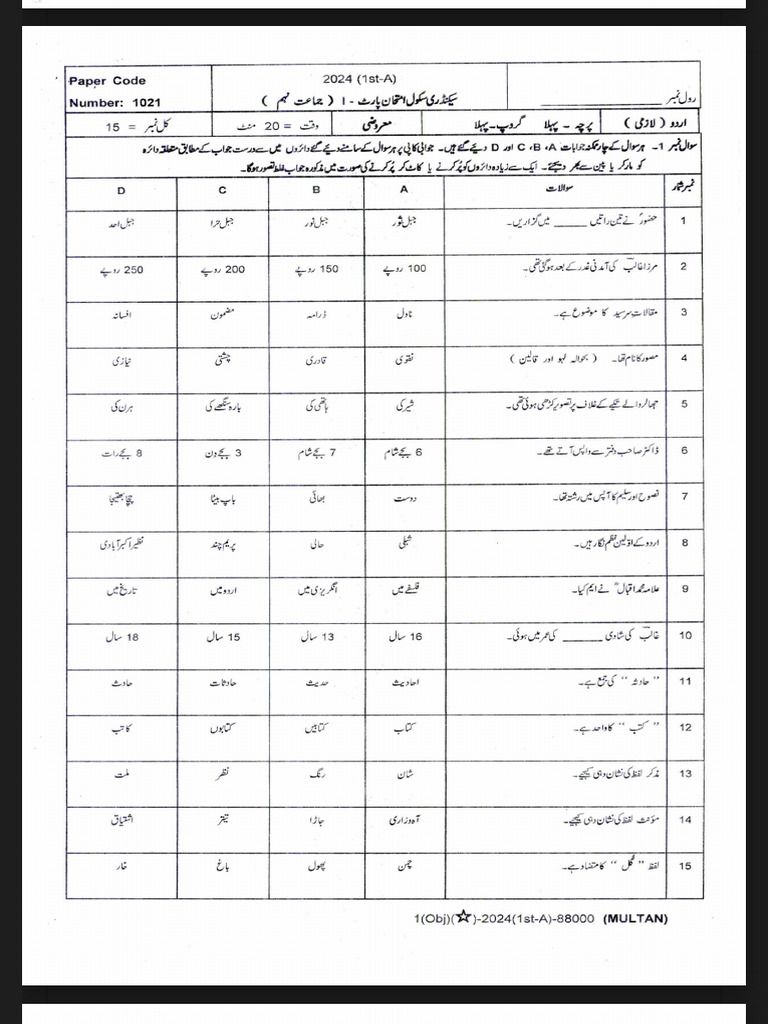 Paper Code
Number: 1021
2024 (1st-A)
سیکنڈری سکول امتحان پارٹ - I ( جماعت نہم )
رول نمبر ____________
اردو ( لازمی ) پرچہ - پہلا گروپ - پہلا معروضی وقت = 20 منٹ کل نمبر = 15
سوال نمبر 1- ہر سوال کے چار ممکنہ جوابات A، B، C اور D دیئے گئے ہیں۔ جوابی کاپی پر ہر سوال کے سامنے دیئے گئے دائروں میں سے درست جواب کے مطابق متعلقہ دائرہ
کو مارکر یا پین سے بھر دیجئے۔ ایک سے زیادہ دائروں کو پُر کرنے یا کاٹ کر پُر کرنے کی صورت میں مذکورہ جواب غلط تصور ہوگا۔
نمبر شمار سوالات A B C D
1 حضورؐ نے تین راتیں ______ میں گزاریں۔ جبل ثور جبل نور جبل حرا جبل احد
2 مرزا غالب کی آمدنی غدر کے بعد ہو گئی تھی۔ 100 روپے 150 روپے 200 روپے 250 روپے
3 مقالاتِ سرسید کا موضوع ہے۔ ناول ڈرامہ مضمون افسانہ
4 مصور کا نام تھا۔ ( بحوالہ لہو اور قالین ) نقوی قادری چشتی نیازی
5 جھالر والے تکیے کے غلاف پر تصویر کڑھی ہوئی تھی۔ شیر کی ہاتھی کی بارہ سنگھے کی ہرن کی
6 ڈاکٹر صاحب دفتر سے واپس آتے تھے۔ 6 بجے شام 7 بجے شام 3 بجے دن 8 بجے رات
7 نصوح اور سلیم کا آپس میں رشتہ تھا۔ دوست بھائی باپ بیٹا چچا بھتیجا
8 اردو کے اوّلین نظم نگار ہیں۔ شبلی حالی پریم چند نظیر اکبر آبادی
9 علامہ محمد اقبالؒ نے ایم کیا۔ فلسفے میں انگریزی میں اردو میں تاریخ میں
10 غالب کی شادی ______ کی عمر میں ہوئی۔ 16 سال 13 سال 15 سال 18 سال
11 "حادثہ" کی جمع ہے۔ احادیث حدیث حادثات حادث
12 "کتب" کا واحد ہے۔ کتاب کتابیں کتابوں کاتب
13 مذکر لفظ کی نشان دہی کیجیے۔ شان رنگ نظر ملت
14 مؤنث لفظ کی نشان دہی کیجیے۔ آہ و زاری جاڑا تیتر اشتیاق
15 لفظ "گُل" کا متضاد ہے۔ چمن پھول باغ خار
1(Obj)(☆)-2024(1st-A)-88000 (MULTAN)